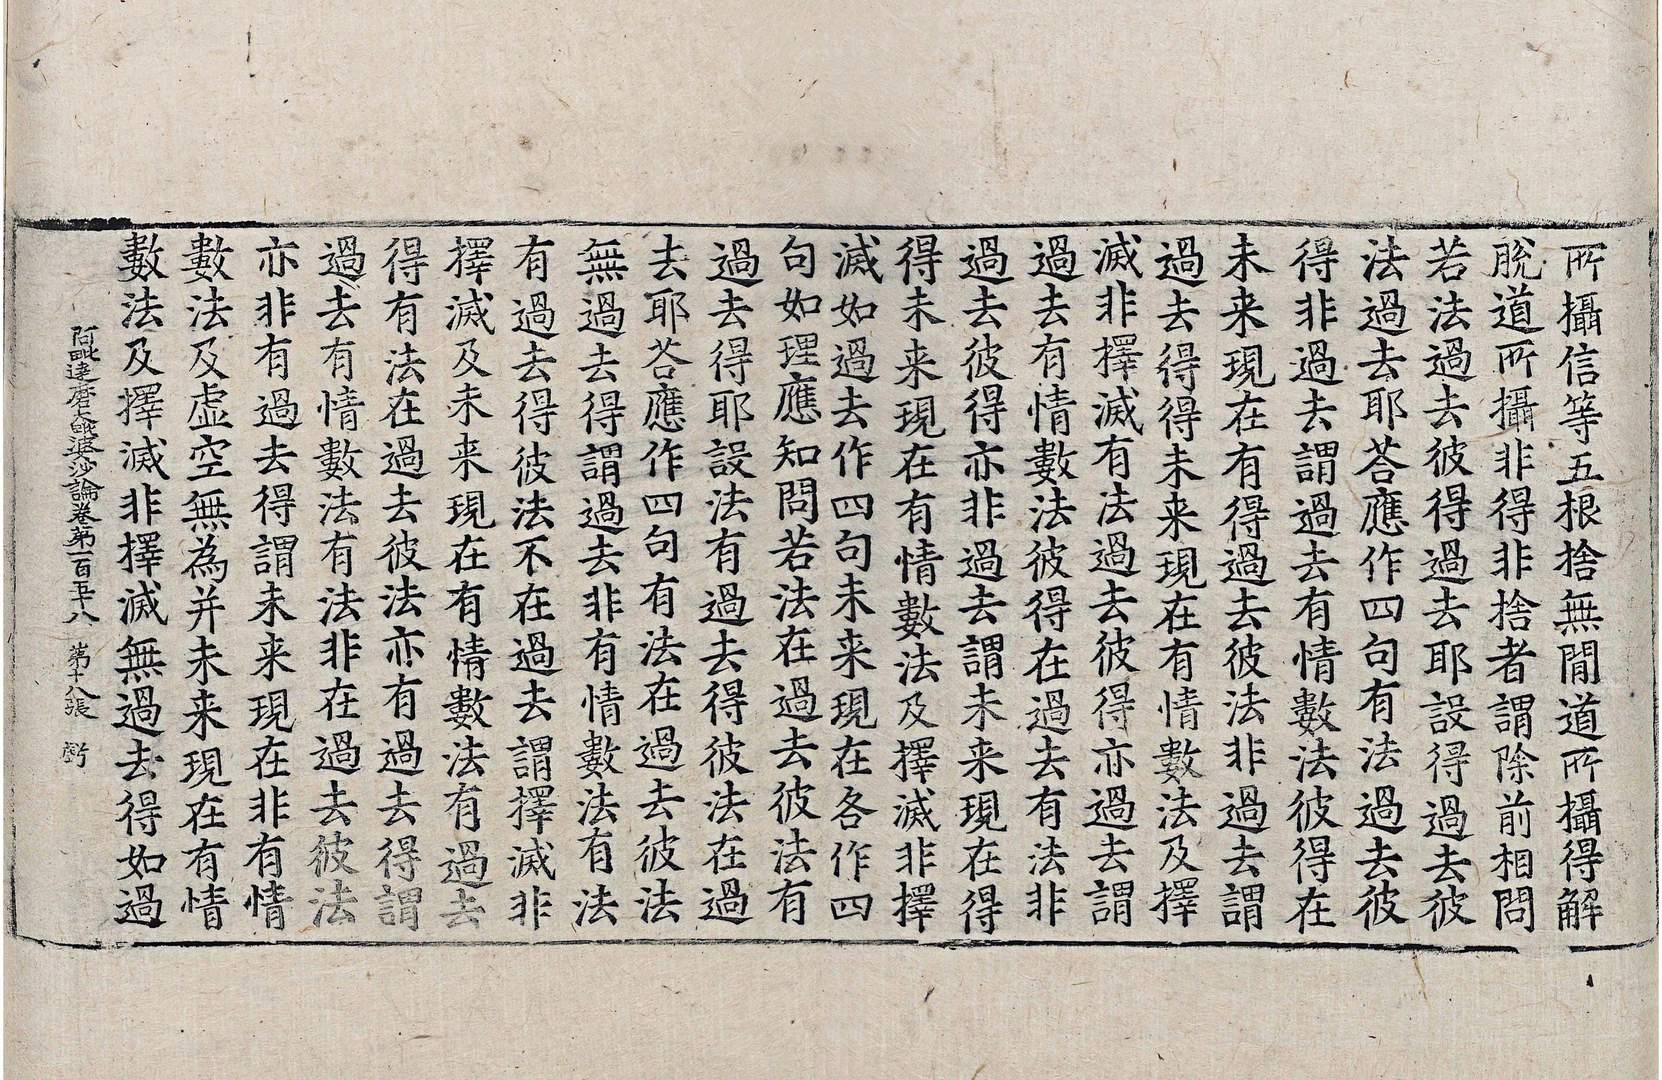 所攝信等五根捨無間道所攝得解
脫道所攝非得非捨者謂除前相問
若法過去彼得過去耶設得過去彼
法過去耶荅應作四句有法過去彼
得非過去謂過去有情數法彼得在
未来現在有得過去彼法非過去謂
過去得得未来現在有情數法及擇
滅非擇滅有法過去彼得亦過去謂
過去有情數法彼得在過去有法非
過去彼得亦非過去謂未来現在得
得未来現在有情數法及擇滅非擇
滅如過去作四句未来現在各作四
句如理應知問若法在過去彼法有
過去得耶設法有過去得彼法在過
去耶荅應作四句有法在過去彼法
無過去得謂過去非有情數法有法
有過去得彼法不在過去謂擇滅非
擇滅及未来現在有情數法有過去
得有法在過去彼法亦有過去得謂
過去有情數法有法非在過去彼法
亦非有過去得謂未来現在非有情
數法及虛空無為并未来現在有情
數法及擇滅非擇滅無過去得如過
阿毗達磨大毗婆沙論卷第一百五十八 第十八張